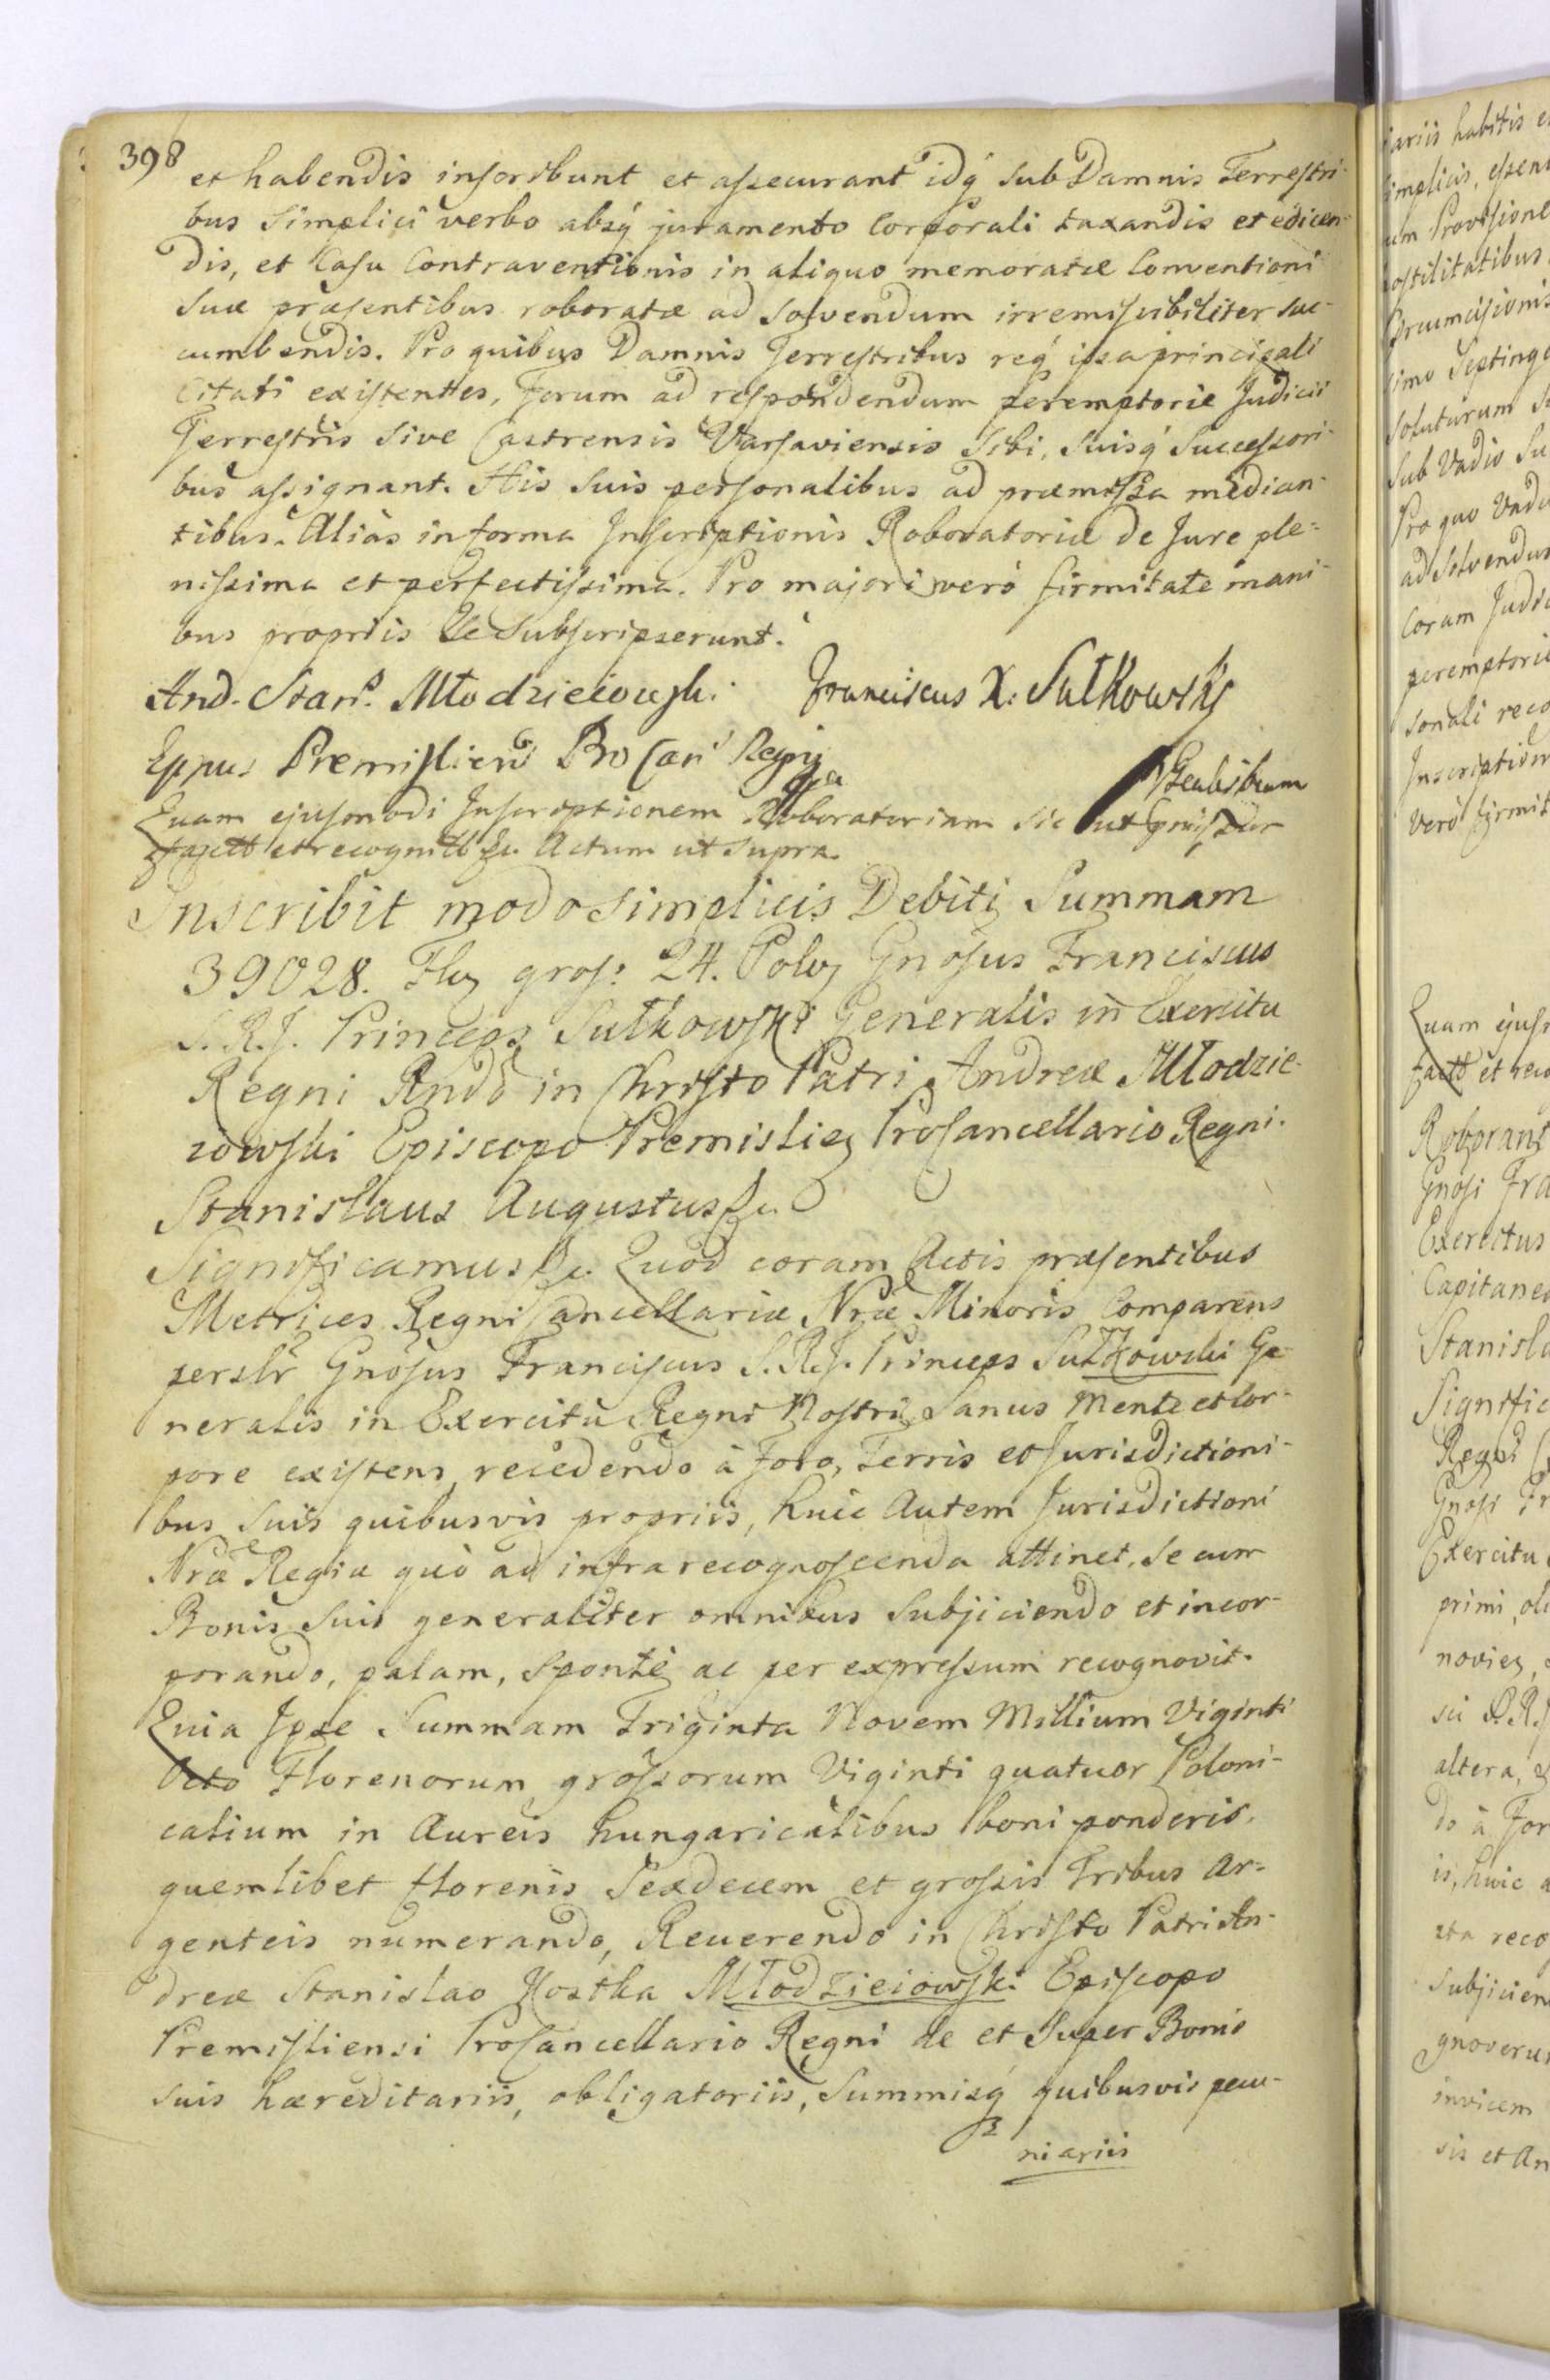 398
et habendis inscribunt et assecurant idq́ sub Damnis Terrestri-
bus simplici verbo absq́ juramento Corporali taxandis et edicen-
dis, et Casu Contraventionis in aliquo memoratæ Conventioni
suæ præsentibus roboratæ ad solvendum irremissibiliter suc-
cumbendis. Pro quibus Damnis Terrestribus req́ ipsa principali
Citati existentes, Forum ad respondendum peremptorie Judicii
Terrestris sive Castrensis Varsaviensis Sibi, suisq́ Successori-
bus assignant. His suis personalibus ad præmissa median-
tibus. Alias in forma Inscriptionis Roboratoriæ de Jure ple-
nissima et perfectissima. Pro majori veró firmitate mani-
bus propriis se subscripserunt.
And. Stan. Młodzieiowski Franciscus X. Sułkowski
Eppus Premislien Pro Can Regni
Quam ejusmodi Inscriptionem Roboratoriam sic ut
et recognitt Actum ut supra.
Inscribit modo simplicis Debiti Summam
39028. Flor gros: 24. Polo Gnosus Franciscus
S. R. J. Princeps Sułkowski Generalis in Exercitu
Regni Rndo in Christo Patri Andreæ Młodzie-
iowski Episcopo Premislien ProCancellario Regni.
Stanislaus Augustus &c.
Significamus &c. Quod coram Actis præsentibus
Metrices Regni Cancellariæ Nræ Minoris Comparens
perslr Gnosus Franciscus S. R. J. Princeps Sułkowski Ge-
neralis in Exercitu Regni Nostri, sanus mente et Cor-
pore existens, recedendo à Foro, Terris et Jurisdictioni-
bus suis quibusvis propriis, huic autem Jurisdictioni
Nræ Regiæ quò ad infrarecognoscenda attinet, se cum
Bonis suis generaliter omnibus subjiciendo et incor-
porando, palam, sponte ac per expressum recognovit.
Quia Ipse Summam Triginta Novem Millium Viginti
Octo Florenorum grossorum Viginti quatuor Poloni-
calium in Aureis hungaricalibus boni ponderis,
quemlibet florenis Sexdecem et grossis Tribus ar-
genteis numerando, Reuerendo in Christo Patri An-
dreæ Stanislao Kostka Młodzieiowski Episcopo
Premisliensi ProCancellario Regni de et super Bonis
suis hæreditariis, obligatoriis, Summisq́ quibusvis pecu-
niariis